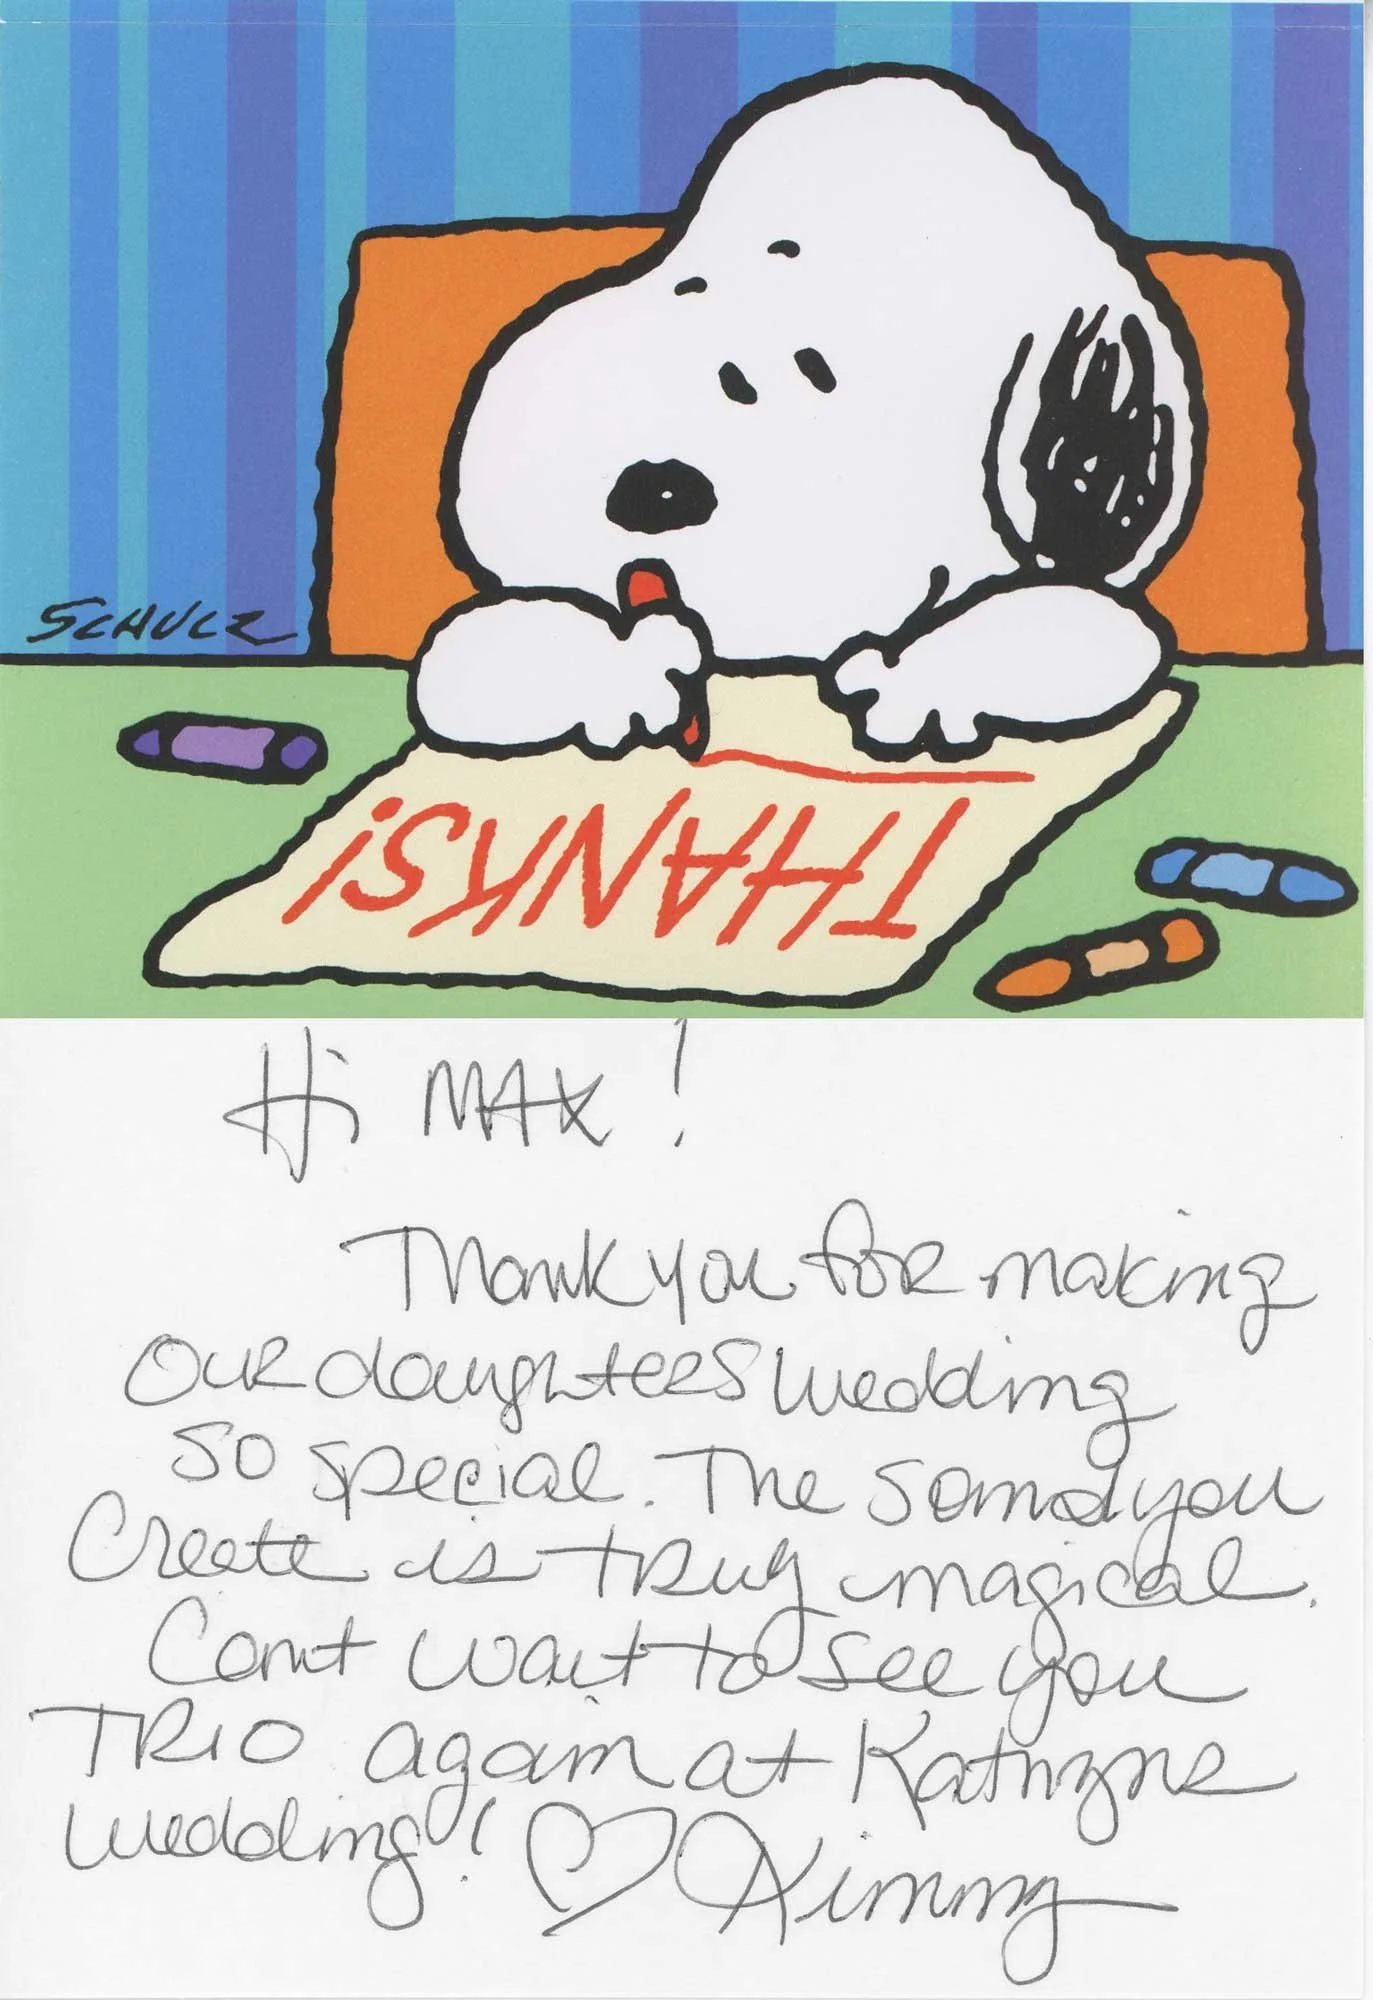 SCHULZ
THANKS!
Hi MAX!
Thank you for making
our daughters wedding
so special. The sound you
Create is truly magical.
Can't wait to see you
TRIO again at
wedding! ♡ Kimmy